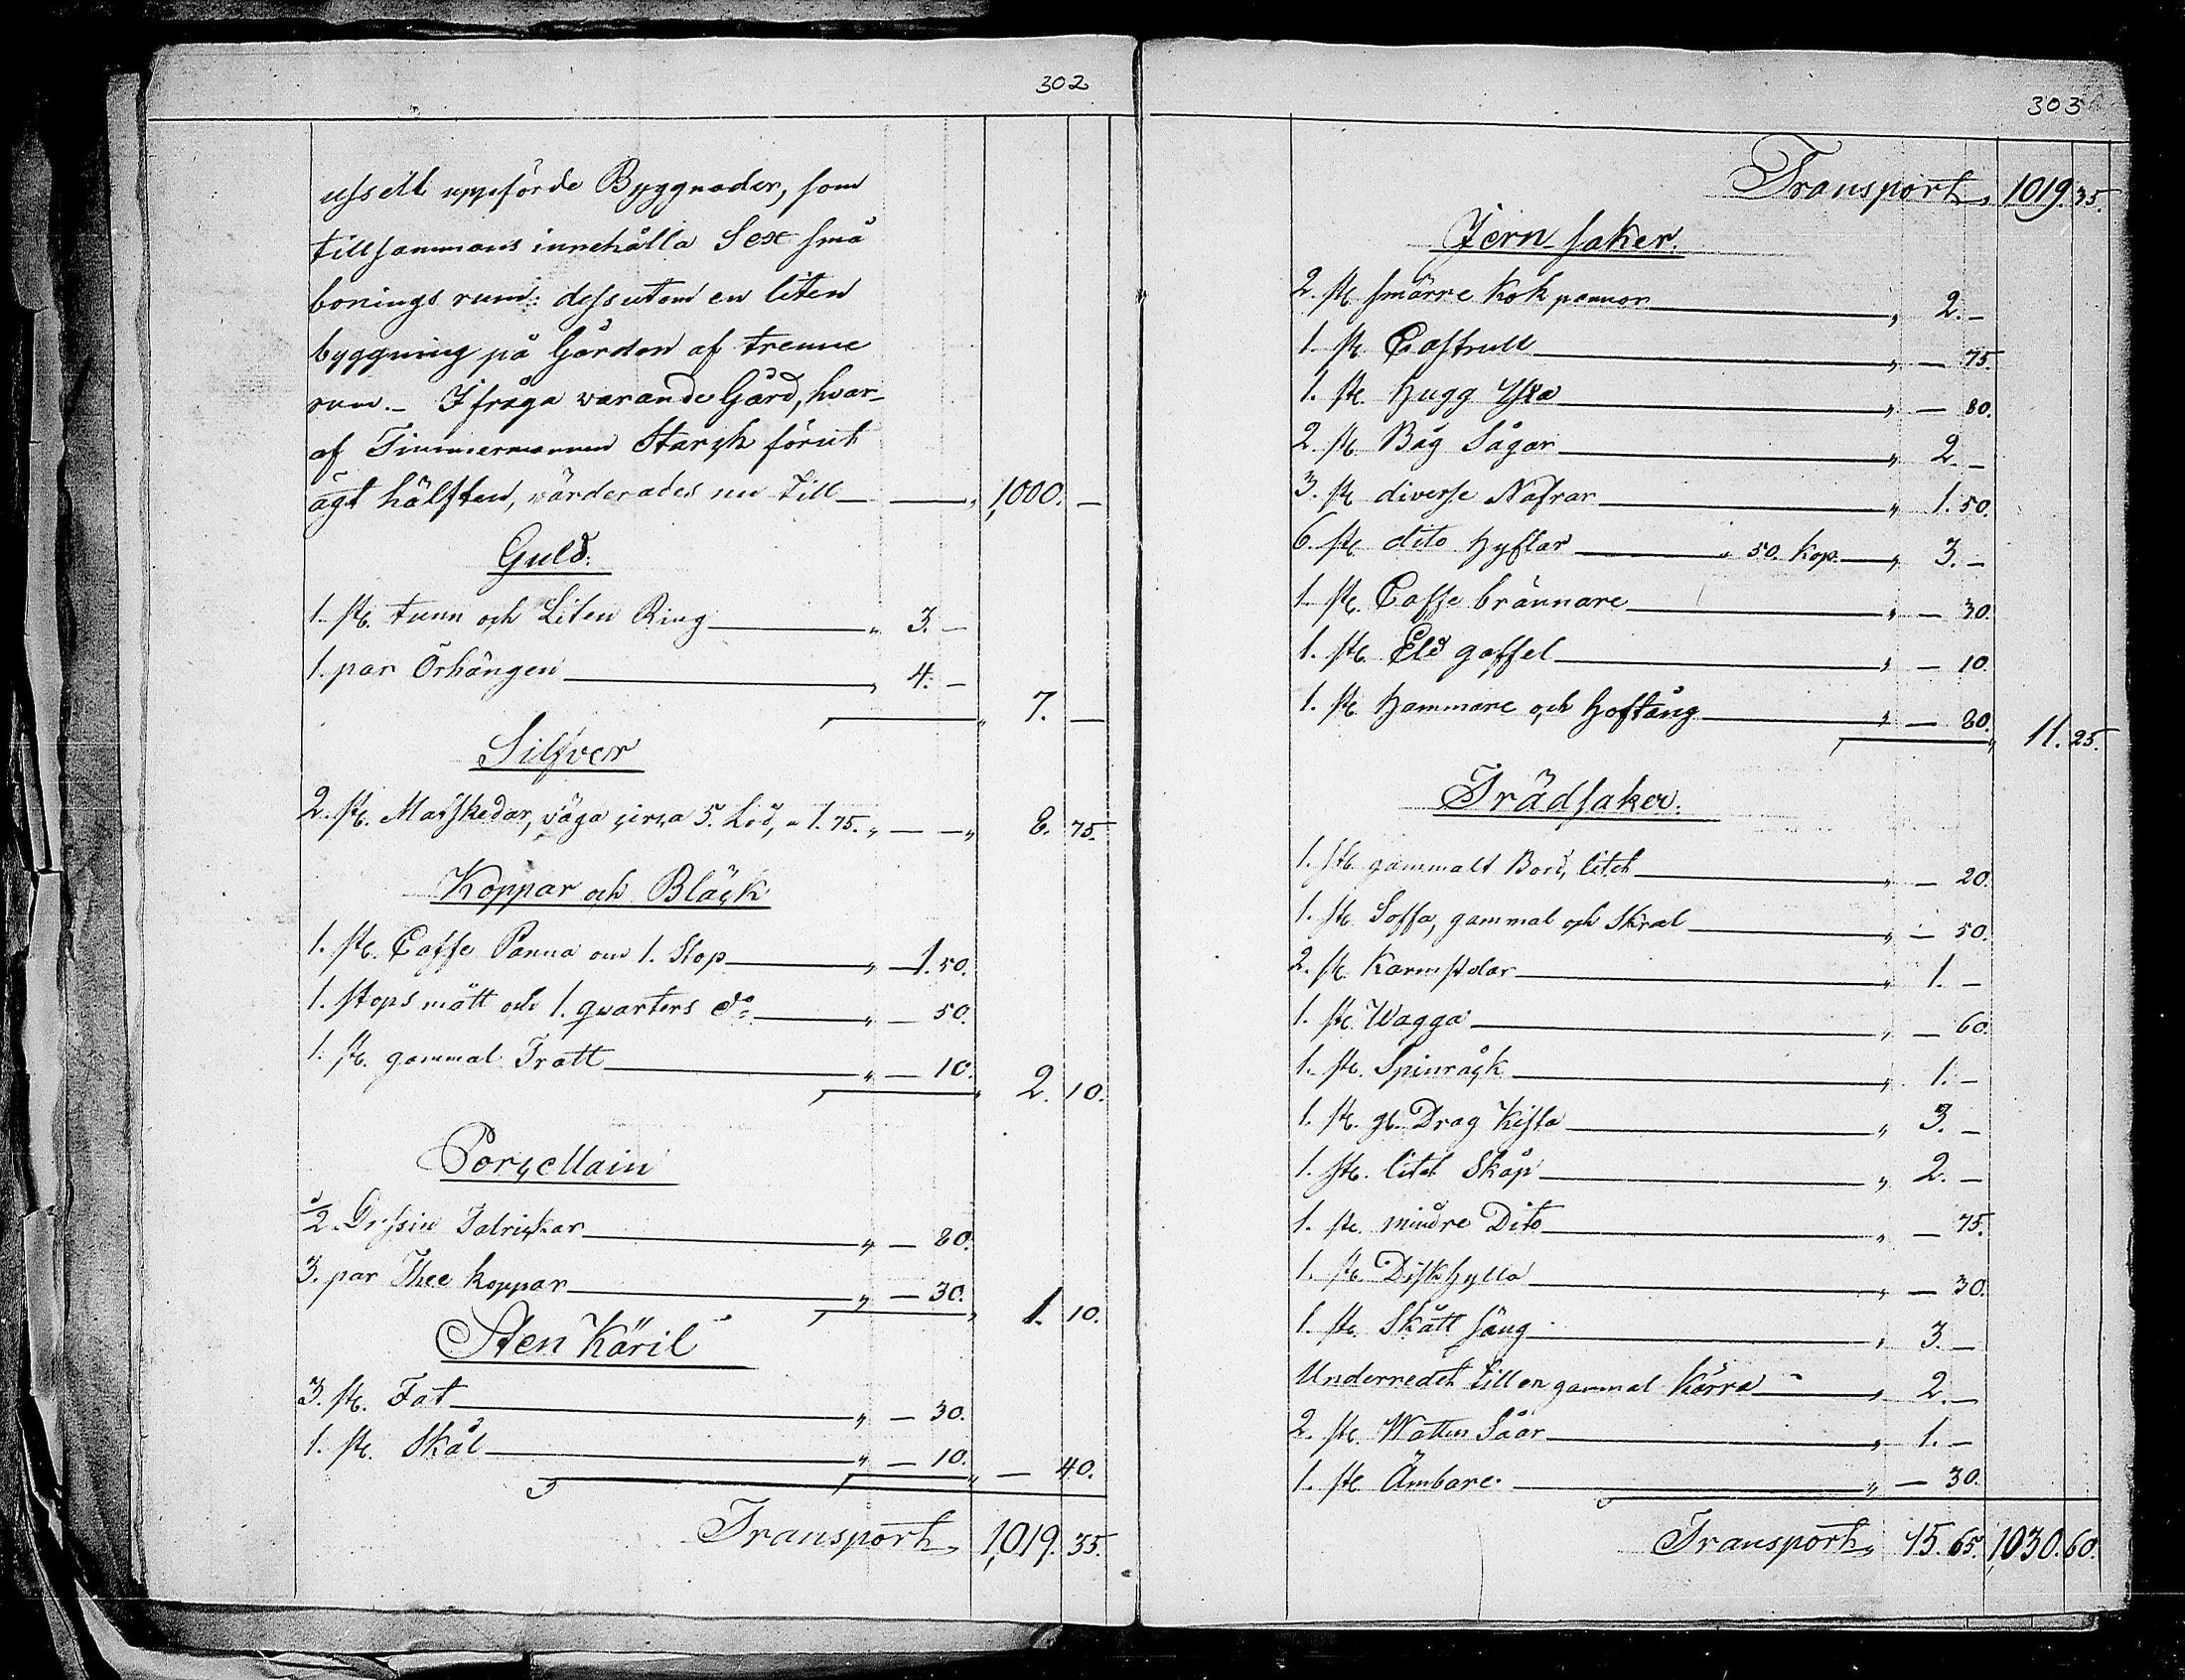 302
usselt uppförde Byggnader, som
tillsammans innehålla Sex små
bonings rum: dessutom en liten
byggning på Gården af trenne
rum.- I fråga varande Gård, hvar-
af Timmermannen Starck förut
ägt hälften, värderades nu till — — " 1,000. —
Guld.
1. st. tunn och Liten Ring — " 3. —
1. par Örhängen — " 4. —
" 7. —
Silfver
2. st. Matskedar, väga circa 5. Lod, a 1. 75. " — — " 8. 75.
Koppar och Bläck
1. st. Caffe Panna om 1. Stop — " — 1. 50.
1. stops mått och 1. qvarters do — " — 50.
1. st. gammal Tratt — " — 10.
" 2. 10.
Porcellain
1/2 Dussin Talrickar — " — 80.
3. par Thee koppar — " — 30.
" 1. 10.
Sten Käril
3. st. Fat — " — 30.
1. st. Skål — " — 10.
" — 40.
Transport " 1,019. 35.
303
Transport " 1019. 35.
Jern saker.
2. st. smärre Kok pannor — " 2. —
1. st. Castrull — " — 75.
1. st. Hugg Yxa — " — 80.
2. st. Båg Sågar — " 2. —
3. st. diverse Nafrar — " 1. 50.
6. st. dito Hyflar — " 50. Kop. — " 3. —
1. st. Caffe brännare — " — 30.
1. st. Eld gaffel — " — 10.
1. st. Hammare och Hoftång — " — 80.
" 11. 25.
Trädsaker.
1. st. gammalt Bord, litet — " — 20.
1. st. Soffa, gammal och Skral — " — 50.
2. st. Karmstolar — " 1. —
1. st. Wagga — " — 60.
1. st. Spinråck — " 1. —
1. st. gl. Drag Kista — " 3. —
1. st. litet Skåp — " 2. —
1. st. mindre Dito — " — 75.
1. st. Diskhylla — " — 30.
1. st. Skått säng — " 3. —
Underredet till en gammal Kärra — " 2. —
2. st. Watten Såar — " 1. —
1. st. Ämbare — " — 30.
Transport " 15. 65. 1,030. 60.